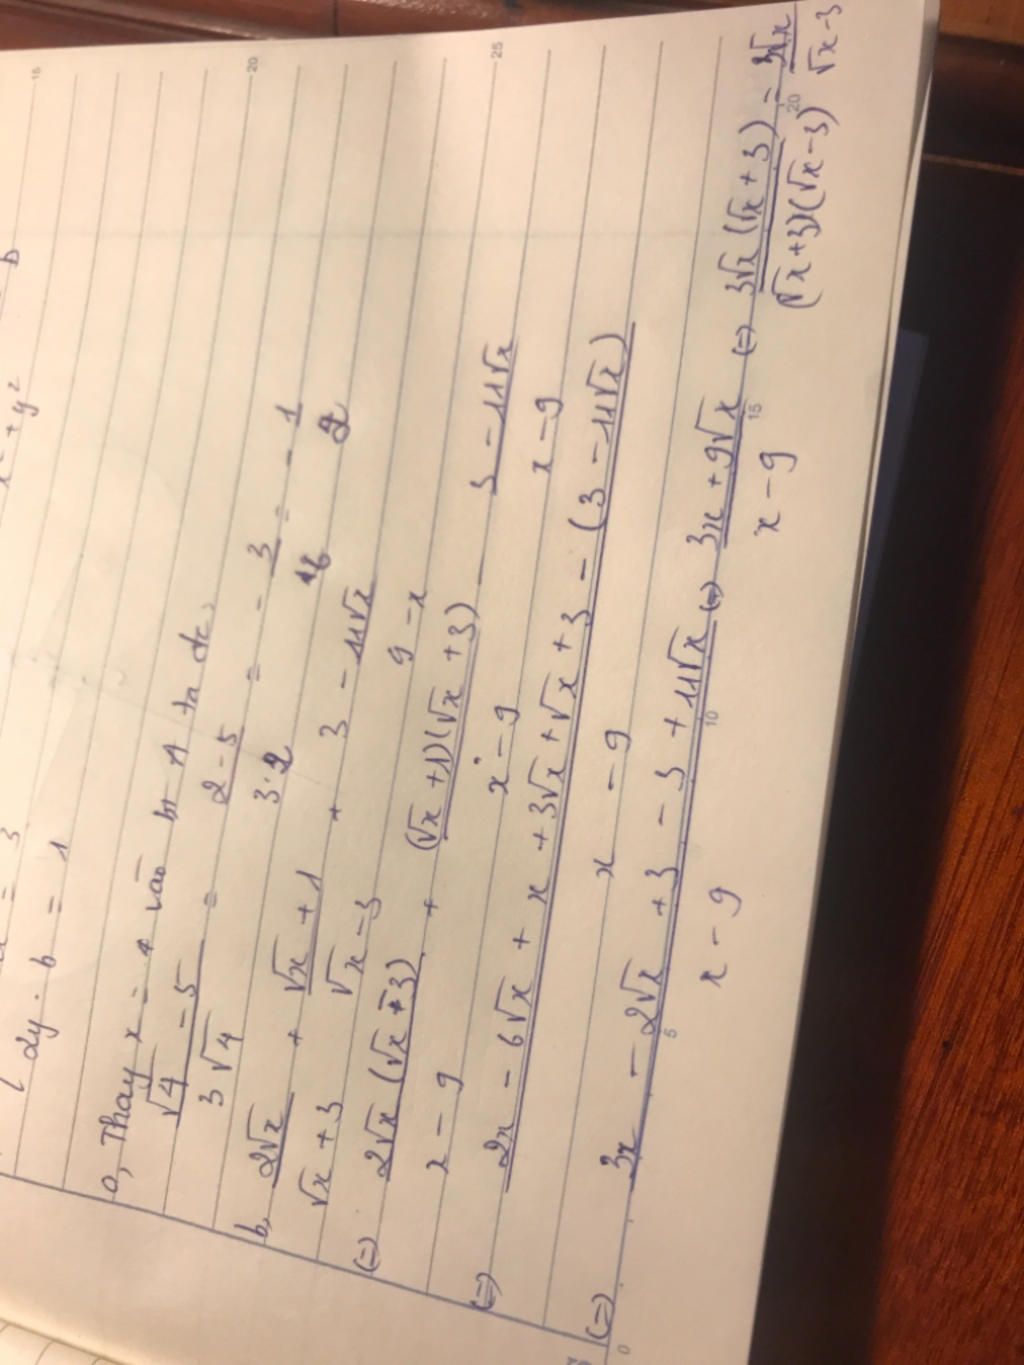 x² + y²
b
= 3
2y. b = 1
a, Thay x = 4 vào bt A ta đc
(√4 - 5)/(3√4) = (2 - 5)/(3.2) = - 3/6 = - 1/2
b, (2√x)/(√x + 3) + (√x + 1)/(√x - 3) + (3 - 11√x)/(9 - x)
(=) (2√x (√x - 3))/(x - 9) + ((√x + 1)(√x + 3))/(x - 9) - (3 - 11√x)/(x - 9)
(=) (2x - 6√x + x + 3√x + √x + 3 - (3 - 11√x))/(x - 9)
(=) (3x - 2√x + 3 - 3 + 11√x)/(x - 9) (=) (3x + 9√x)/(x - 9) (=) (3√x (√x + 3))/((√x + 3)(√x - 3)) = (3√x)/(√x - 3)
15
20
25
0
5
10
15
20